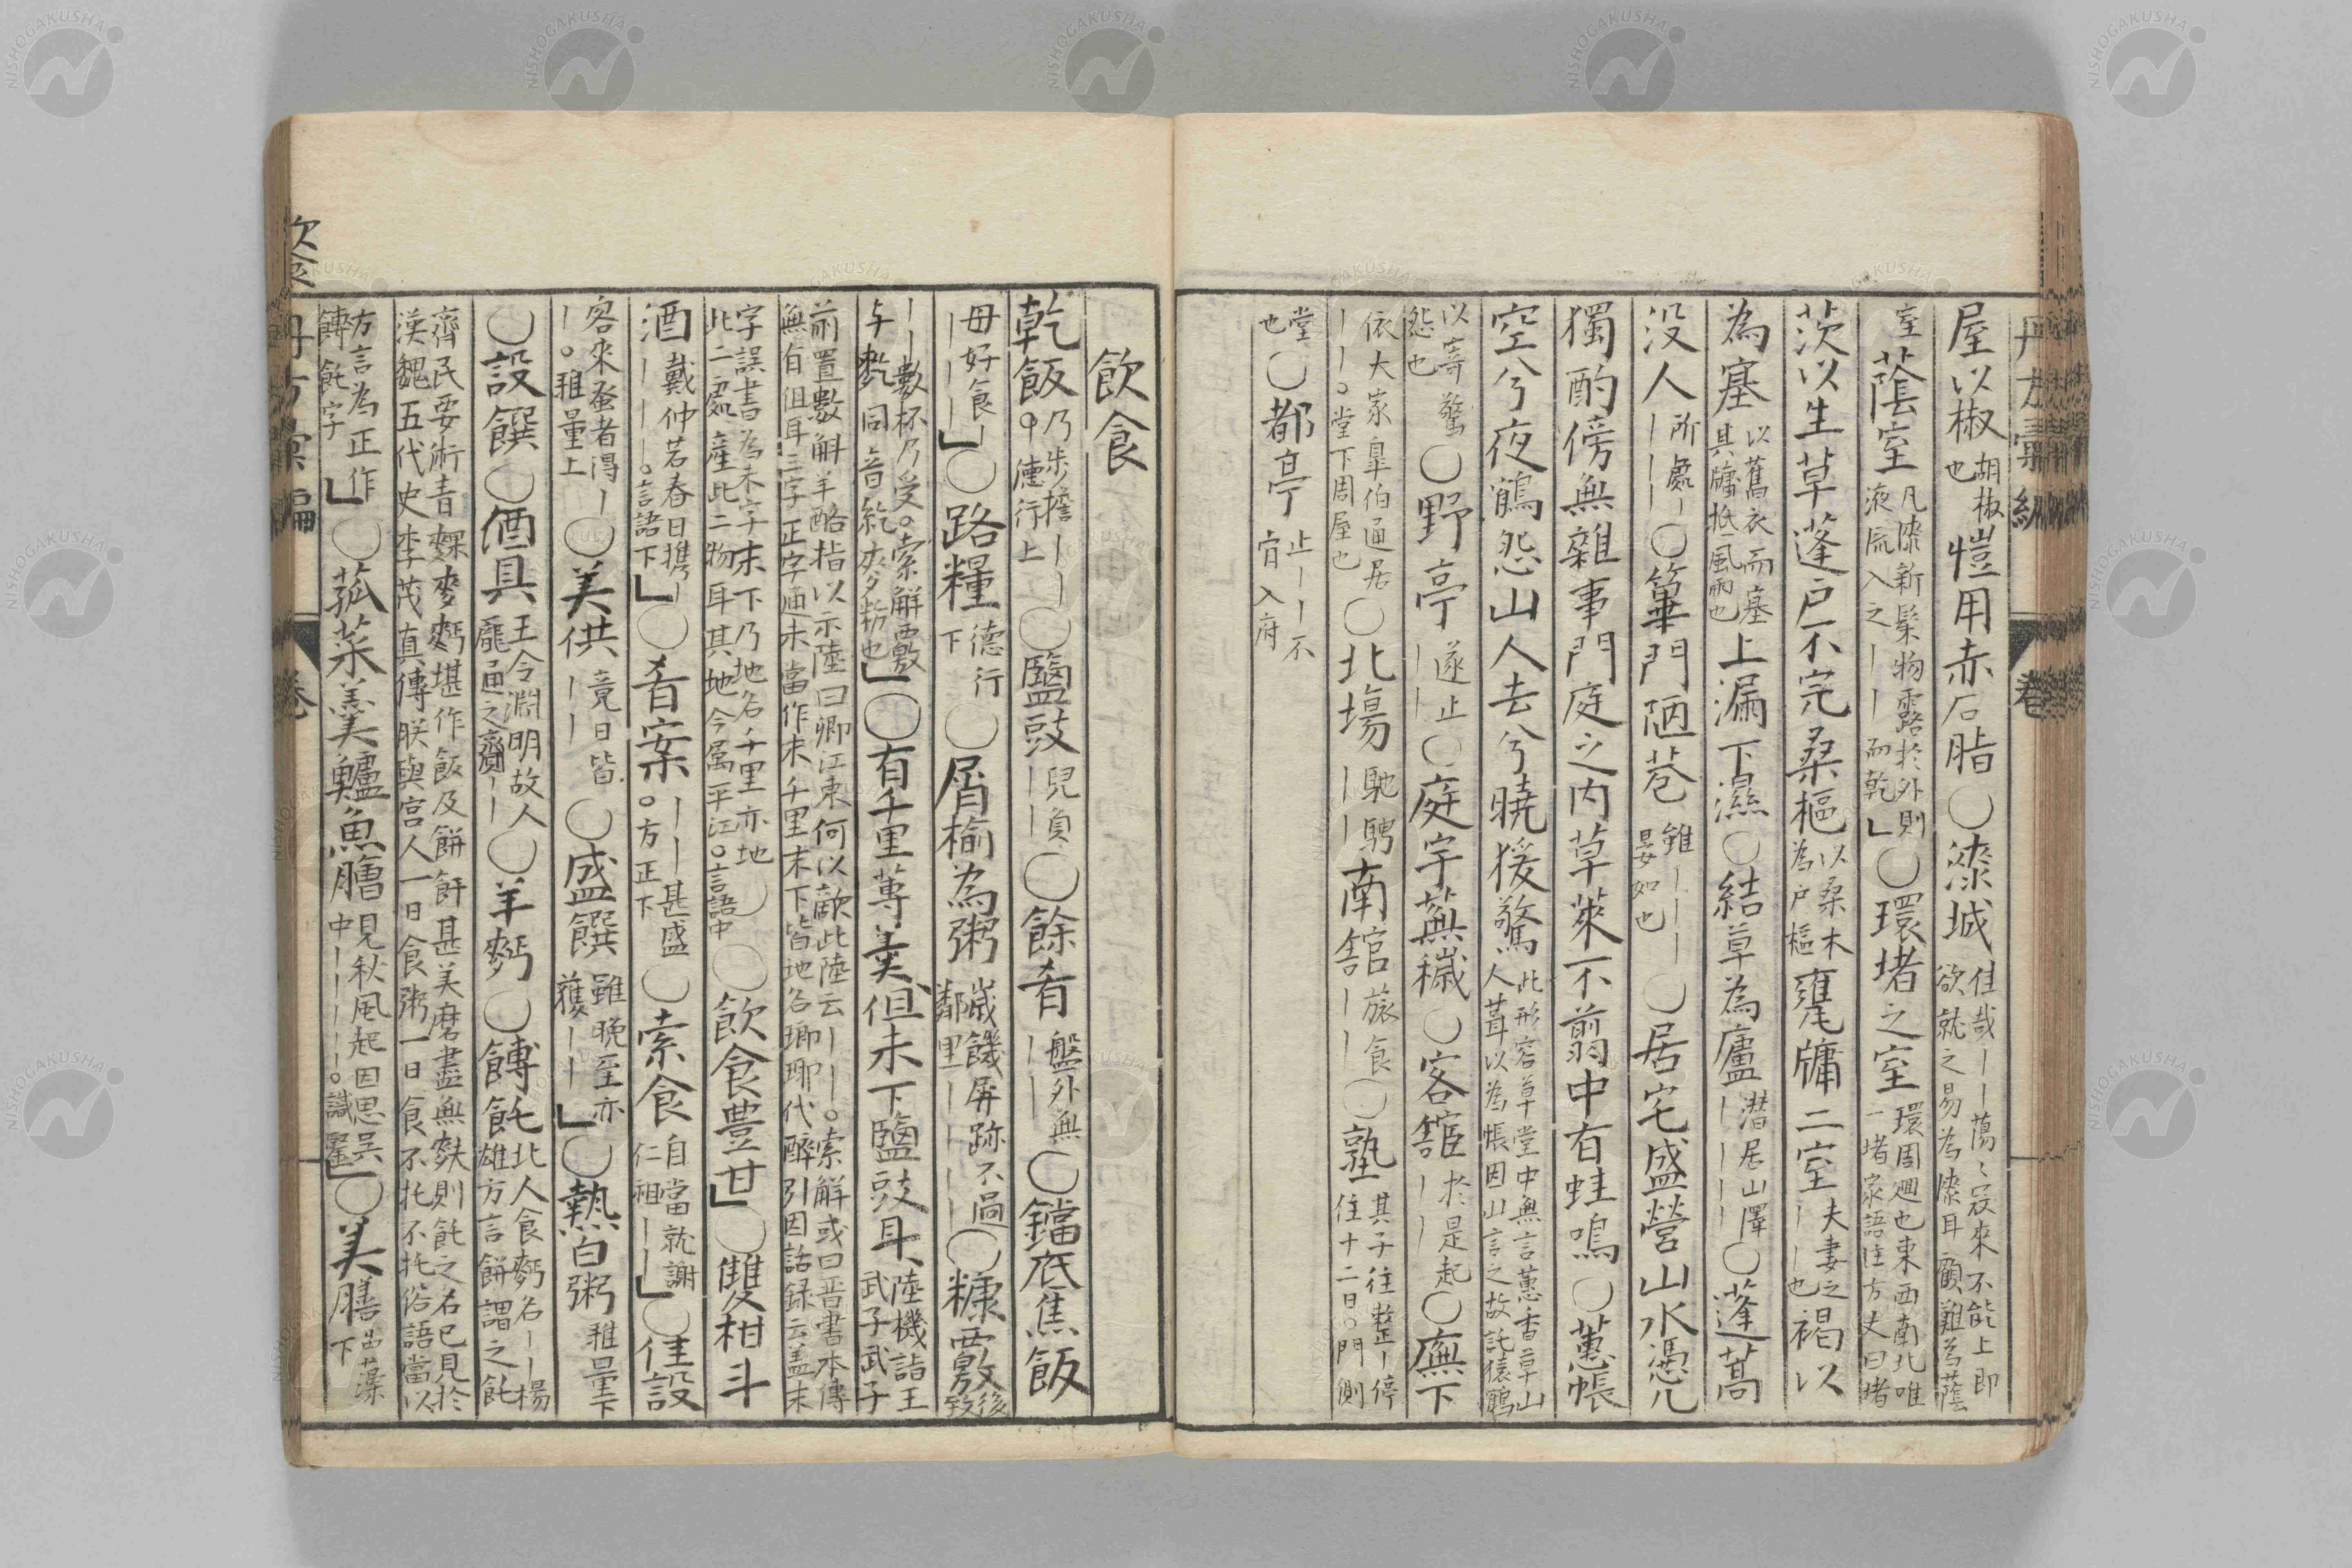 屋以椒胡椒也愷用赤石脂〇漆城佳哉丨丨蕩〻寇來不能上即欲就之易為漆耳顧難為蔭
室蔭室凡漆新髹物露於外則液流入之丨丨而乾」〇環堵之室環周迴也東西南北唯一堵家語注方丈曰堵
茨以生草蓬戶不完桑樞以桑木為戶樞甕牖二室夫妻之丨丨也褐以
為塞以舊衣而塞其牖抵風雨也上漏下濕〇結草為廬潛居山澤丨丨丨丨〇蓬蒿
没人所處丨丨丨丨〇篳門陋巷雖丨丨丨丨晏如也〇居宅盛營山水憑几
獨酌傍無雜事門庭之内草萊不翦中有蛙鳴〇蕙帳
空兮夜鶴怨山人去兮曉猨驚此形容草堂中無言蕙香草山人葺以為帳因山言之故託猿鶴
以寄驚怨也〇野亭遂止丨丨〇庭宇蕪穢〇客館於是起丨丨〇廡下
依大家皐伯通居丨丨。堂下周屋也〇北場馳騁丨丨南館旅食丨丨〇塾其子往整丨停住十二日。門側
堂也〇都亭止丨丨不肯入府
飲食
乾飯乃步擔丨丨。德行上〇鹽豉兒負丨丨〇餘肴盤外無丨丨〇鐺底焦飯
母好食丨丨丨丨」〇路糧德行下〇屑榆為粥歲饑屏跡不過鄰里丨丨丨丨〇糠覈後致
丨丨數杯乃受。索解覈与麧同音紇麥粉也」〇有千里蓴羹但未下鹽豉耳陸機詣王武子武子
前置數斛羊酪指以示陸曰卿江東何以敵此陸云丨丨丨。索解或曰晋書本傳無有但耳三字正字通未當作末千里末下皆地名瑯琊代醉引因話録云盖末
字誤書為未字末下乃地名千里亦地此二處産此二物耳其地今属平江。言語中〇飲食豊甘」〇雙柑斗
酒戴仲若春日携丨丨丨丨。言語下」〇肴案丨丨丨甚盛。方正下〇索食自當就謝仁祖丨丨」〇佳設
客來蚤者得丨丨。雅量上〇美供竟日皆丨丨〇盛饌雖晩至亦獲丨丨」〇熱白粥雅量下
〇設饌〇酒具王令淵明故人龐通之齎丨丨〇羊麪〇餺飥北人食麪名丨丨楊雄方言餅謂之飥
齊民要術青䴹麥麪堪作飯及餅飥甚美磨盡無麩則飥之名已見於漢魏五代史李茂貞傳朕與宮人一日食粥一日食不托不托俗語當以
方言為正作餺飥字」〇菰菜羹鱸魚膾見秋風起因思吳中丨丨丨丨丨。識鑒」〇美膳出藻下